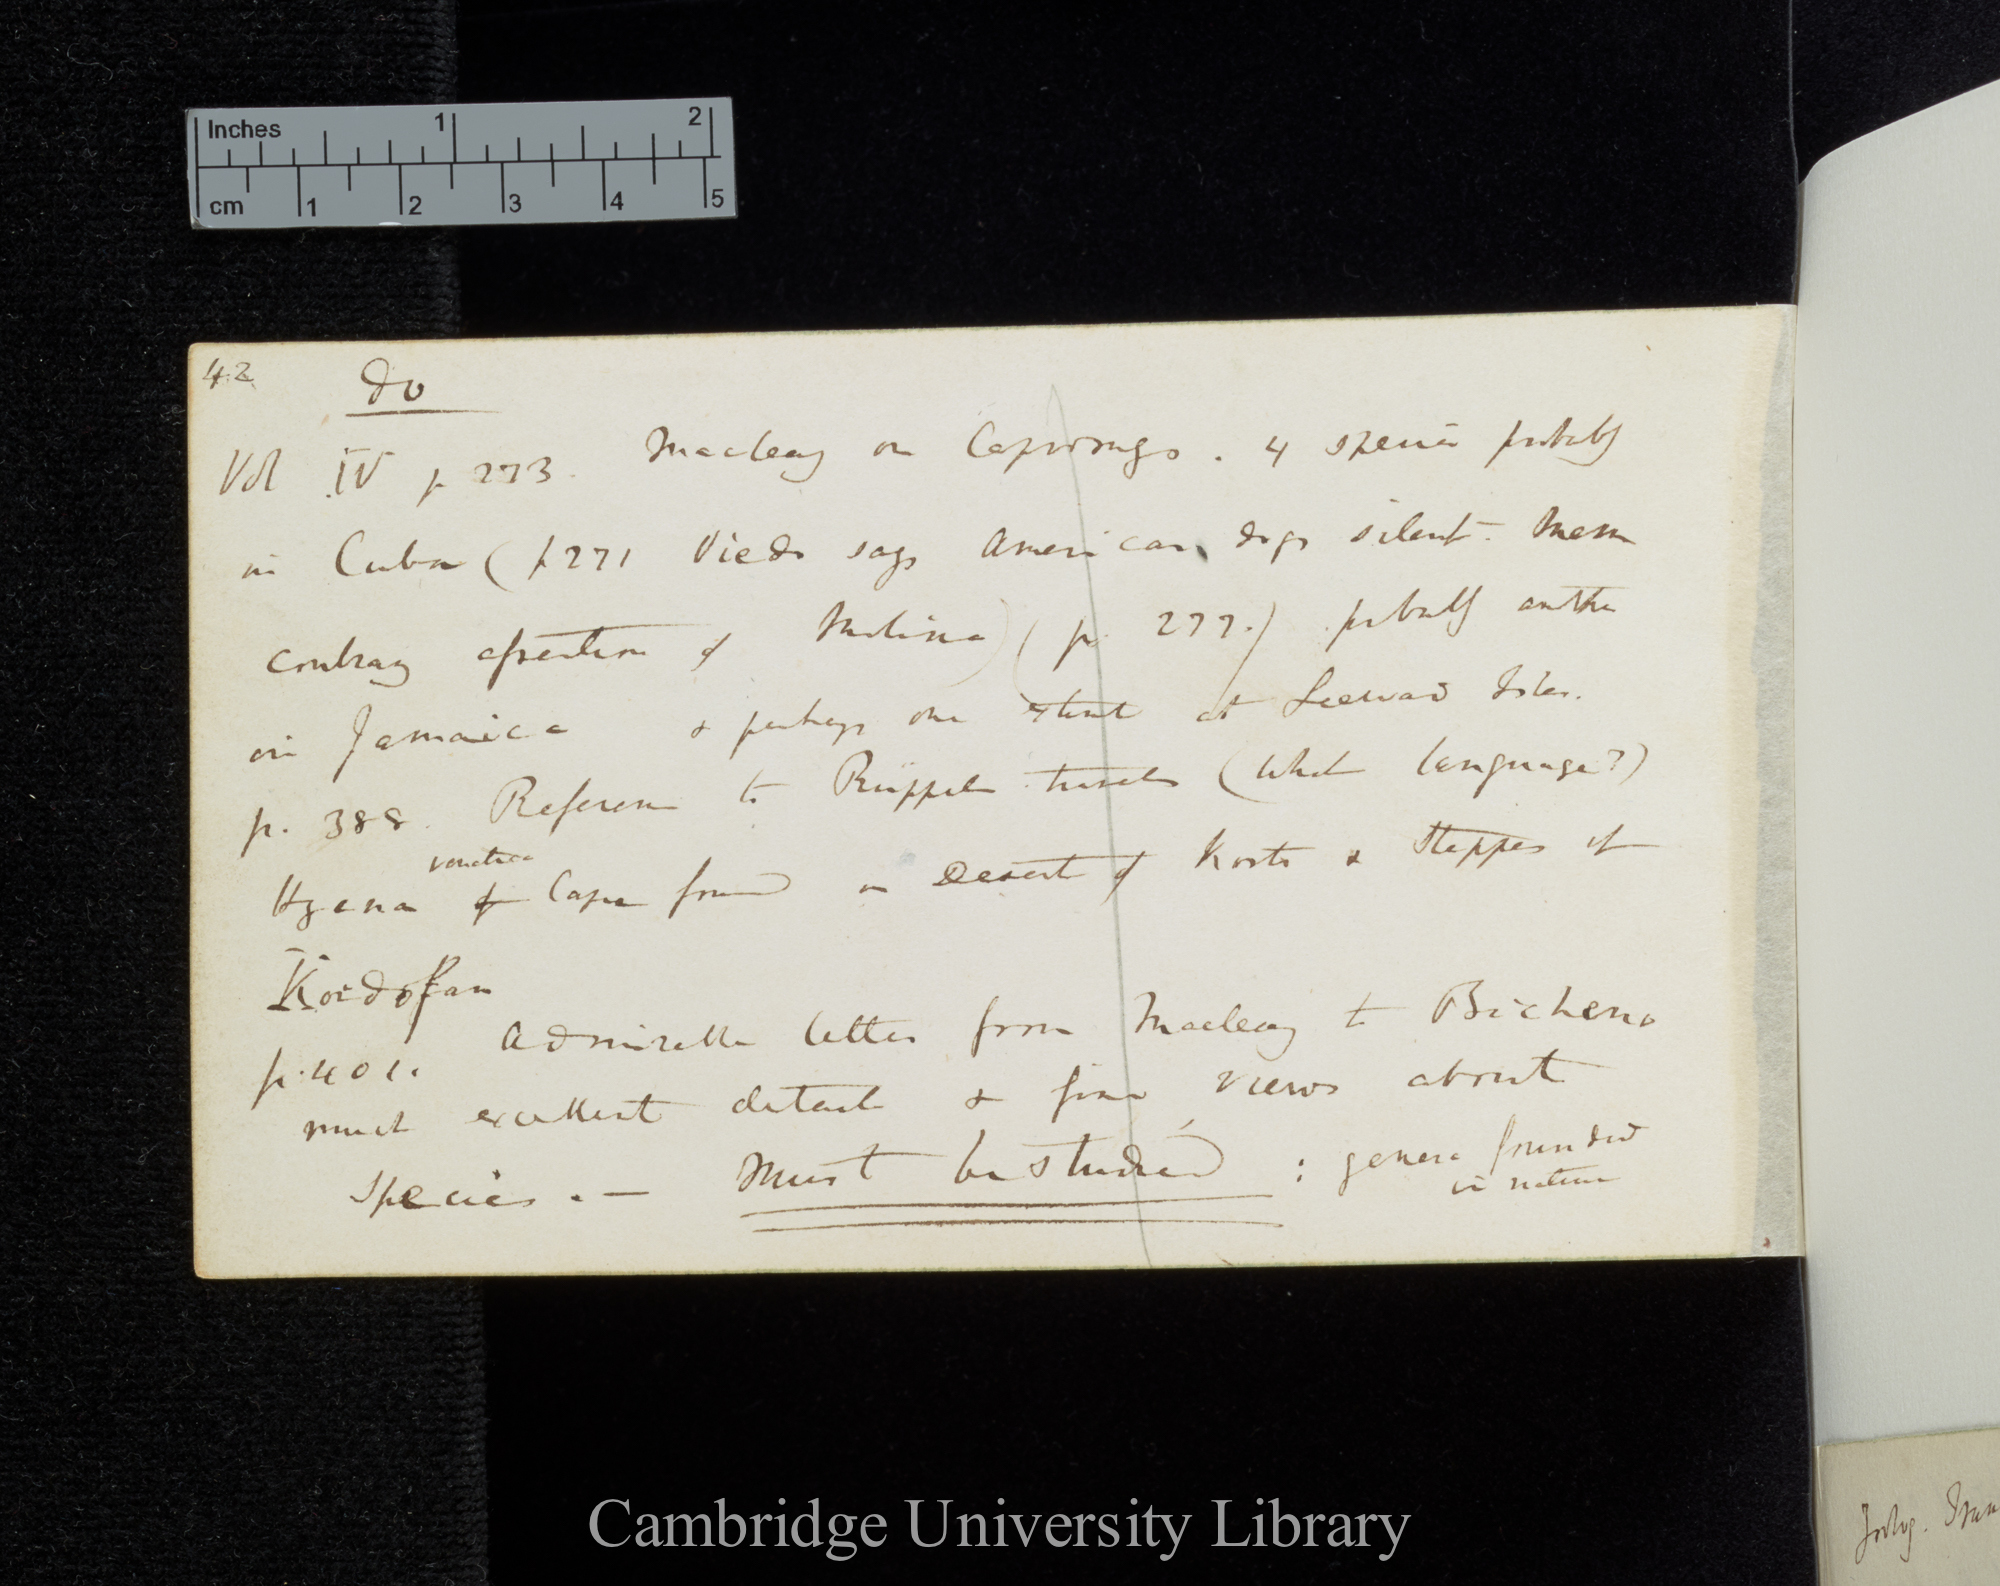 Inches 1 2
cm 1 2 3 4 5
42 do
Vol IV p 273. Macleay on Capromys. 4 species probably
in Cuba (p 271 Viedo says American dogs silent. Mem
contrary assertion of Molina) (p. 277.) probably another
in Jamaica & perhaps one extinct at Leeward Isles.
p. 388. Reference to Rüppel travels (what language?)
venatica
Hyena of Cape found in Desert of Korti & Steppes of
Kordofan
p. 401. Admirable letter from Macleay to Bicheno
much excellent detail & fine views about
species. — Must be studied : genera founded
in nature
Cambridge University Library